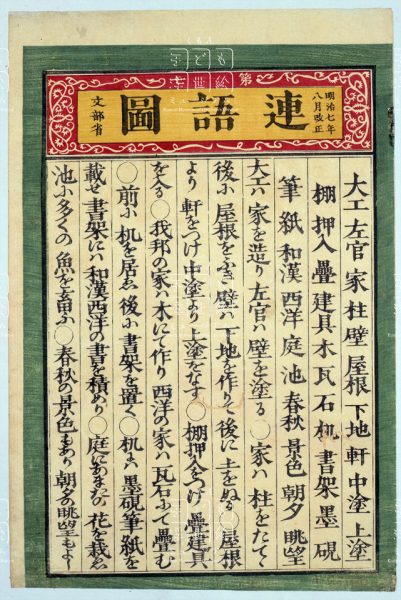 第
明治七年
八月改正
連語圖
文部省
大工左官家柱壁屋根下地軒中塗上塗
棚押入疊建具木瓦石机書架墨硯
筆紙和漢西洋庭池春秋景色朝夕眺望
大工ハ家を造り左官ハ壁を塗る〇家ハ柱をたてゝ
後に屋根をふき壁ハ下地を作りて後に土をぬる〇屋根
より軒をつけ中塗より上塗をなす〇棚押入をつけ疊建具
を入る〇我邦の家ハ木にて作り西洋の家ハ瓦石にて疊む
〇前に机を居ゑ後に書架を置く〇机にハ墨硯筆紙を
載せ書架にハ和漢西洋の書を積めり〇庭にあまたの花を栽ゑ
池に多くの魚を畜ふ〇春秋の景色もあり朝夕の眺望もよし